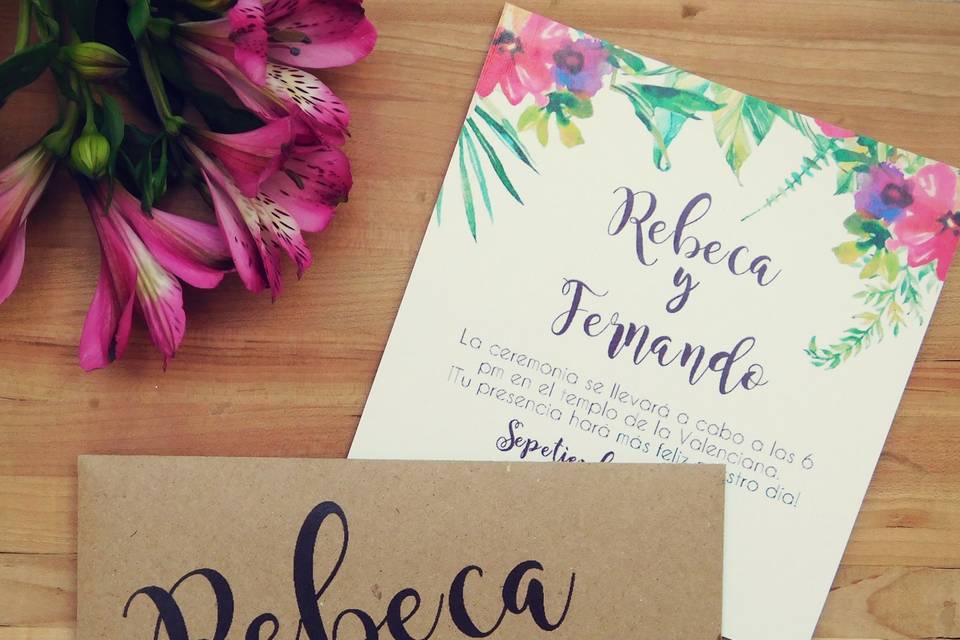 Rebeca
y
Fernando
La ceremonia se llevará a cabo a las 6
pm en el templo de la Valenciana.
¡Tu presencia hará más feliz
día!
Rebeca